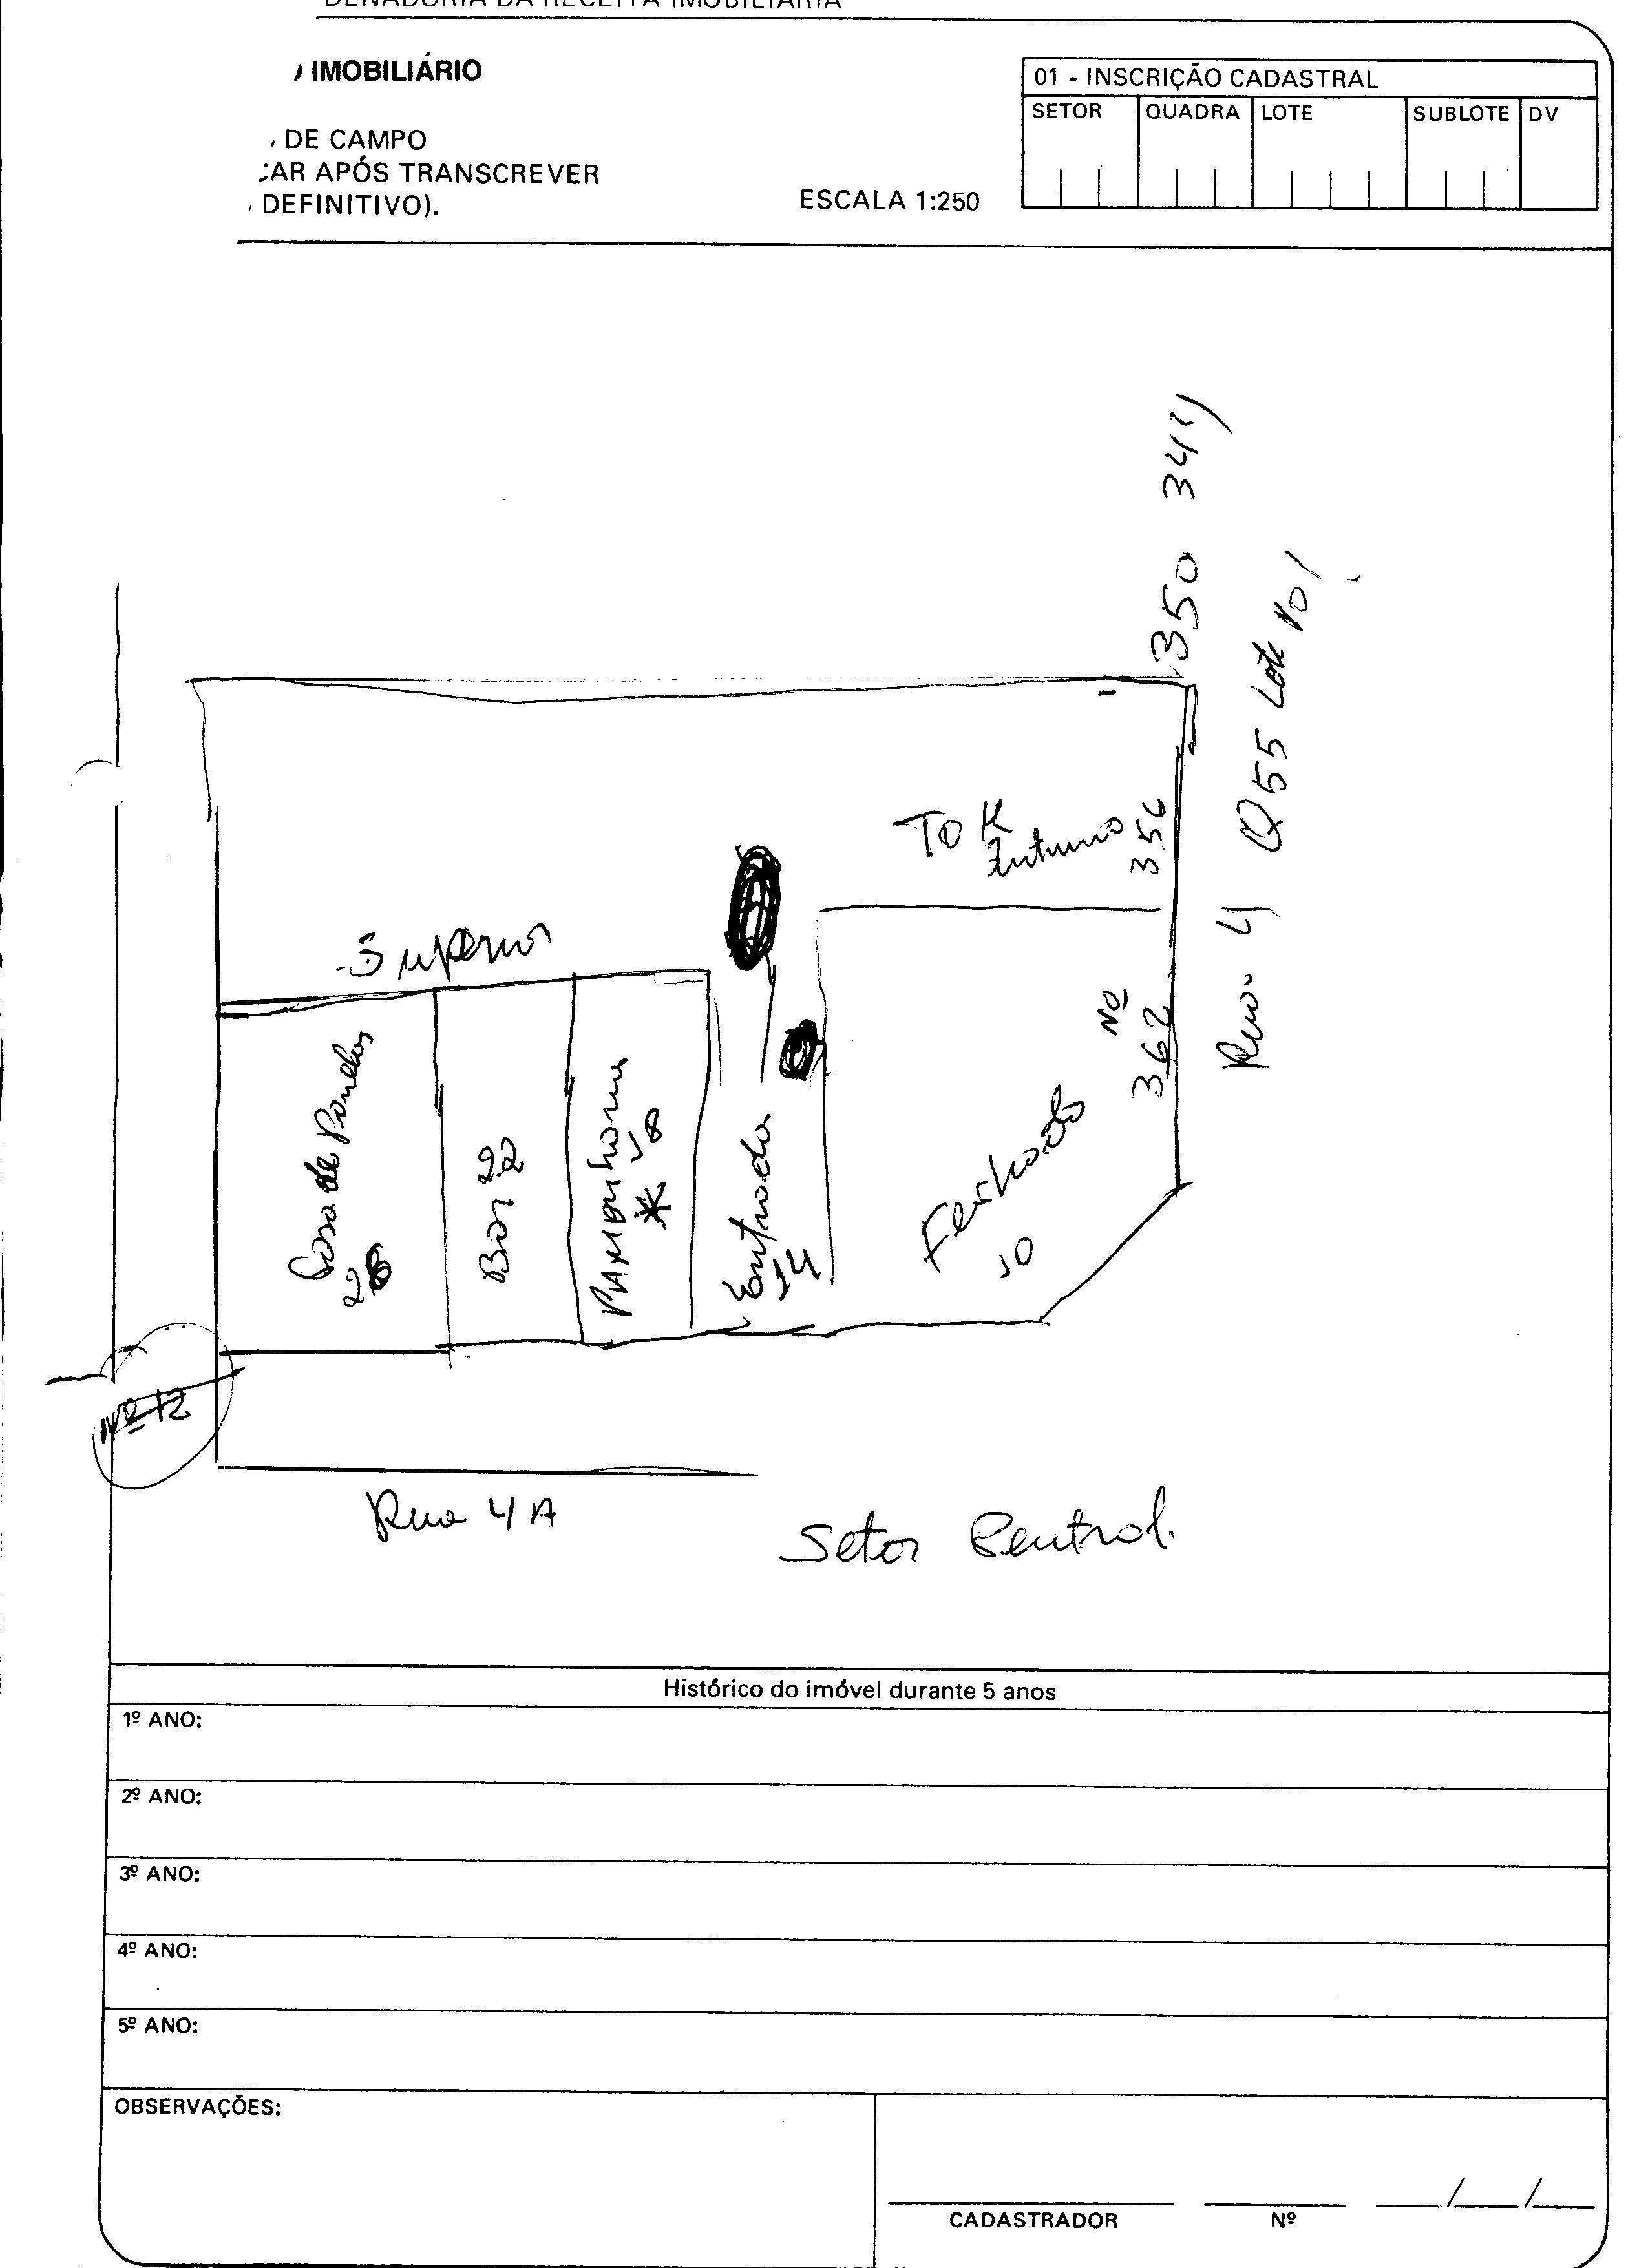 DENADORIA DA RECEITA IMOBILIÁRIA
IMOBILIÁRIO
DE CAMPO
AR APÓS TRANSCREVER
DEFINITIVO).
ESCALA 1:250
01 - INSCRIÇÃO CADASTRAL
SETOR QUADRA LOTE SUBLOTE DV
350 344
Rua 4 Q 55 Lote
TO K
356
Superior
Nº
362
Casa de
28
Bar 22
18
Entrada
14
Fechado
10
Nº 12
Rua 4 A
Setor Central.
Histórico do imóvel durante 5 anos
1º ANO:
2º ANO:
3º ANO:
4º ANO:
5º ANO:
OBSERVAÇÕES:
CADASTRADOR Nº